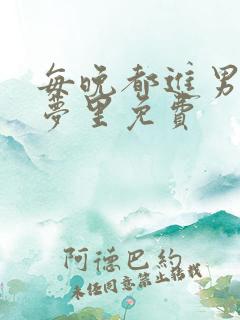 每晚都进男
梦里免费
阿德巴约
未经同意禁止转载